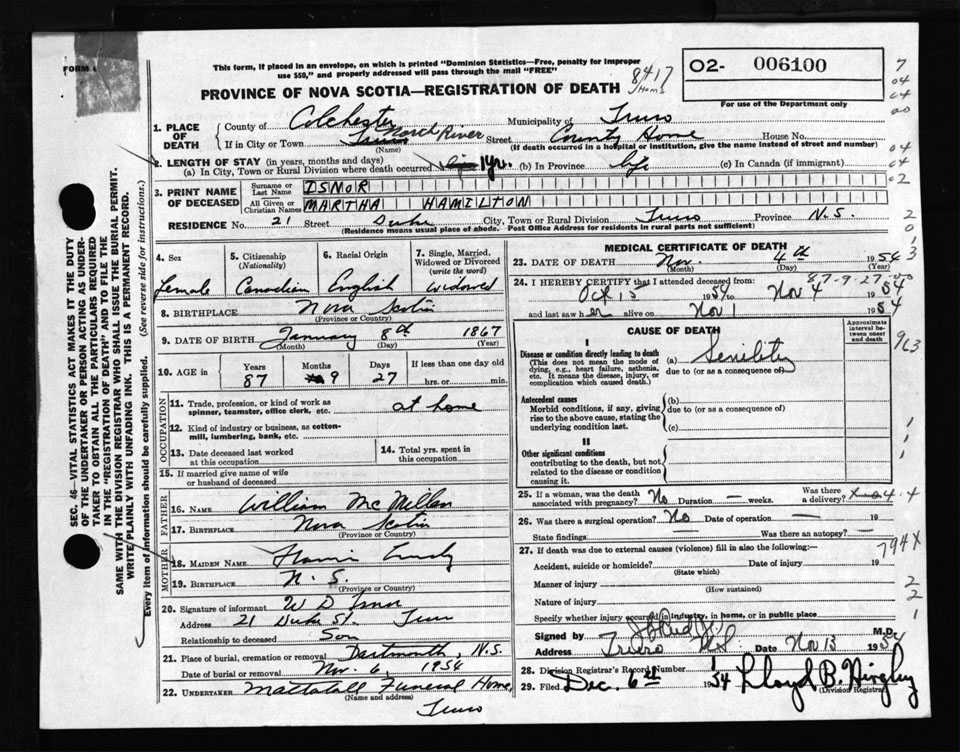 FORM
This form, if placed in an envelope, on which is printed "Dominion Statistics—Free, penalty for improper
use $50," and properly addressed will pass through the mail "FREE"
8417
Home
O2- 006100
For use of the Department only
PROVINCE OF NOVA SCOTIA—REGISTRATION OF DEATH
1. PLACE OF DEATH
County of Colchester Municipality of Truro
If in City or Town Truro North River Street County Home House No.
(Name) (If death occurred in a hospital or institution, give the name instead of street and number)
2. LENGTH OF STAY (in years, months and days)
(a) In City, Town or Rural Division where death occurred 1 yr. (b) In Province life (c) In Canada (if immigrant)
3. PRINT NAME OF DECEASED
Surname or Last Name ISNOR
All Given or Christian Names MARTHA HAMILTON
RESIDENCE No. 21 Street Duke City, Town or Rural Division Truro Province N.S.
(Residence means usual place of abode. Post Office Address for residents in rural parts not sufficient)
4. Sex
Female
5. Citizenship
(Nationality)
Canadian
6. Racial Origin
English
7. Single, Married,
Widowed or Divorced
(write the word)
widowed
8. BIRTHPLACE Nova Scotia
(Province or Country)
9. DATE OF BIRTH January 8th 1867
(Month) (Day) (Year)
10. AGE in
Years Months Days If less than one day
87 9 27 hrs. or min.
OCCUPATION
11. Trade, profession, or kind of work as
spinner, teamster, office clerk, etc. at home
12. Kind of industry or business, as cotton-
mill, lumbering, bank, etc.
13. Date deceased last worked
at this occupation
14. Total yrs. spent in
this occupation
15. If married give name of wife
or husband of deceased
FATHER
16. NAME William McMillan
17. BIRTHPLACE Nova Scotia
(Province or Country)
MOTHER
18. MAIDEN NAME
19. BIRTHPLACE N. S.
(Province or Country)
20. Signature of informant W D Isnor
Address 21 Duke St. Truro
Relationship to deceased Son
21. Place of burial, cremation or removal Dartmouth, N.S.
Date of burial or removal Nov. 6, 1954
22. UNDERTAKER Mattatall Funeral Home,
(Name and address)
Truro
MEDICAL CERTIFICATE OF DEATH
23. DATE OF DEATH Nov. 4th 1954
(Month) (Day) (Year)
24. I HEREBY CERTIFY that I attended deceased from:
87-9-27-00
Oct 15 1954 to Nov 4 1954
and last saw her alive on Nov 1 1954
CAUSE OF DEATH
Approximate
interval be-
tween onset
and death
I
Disease or condition directly leading to death
(This does not mean the mode of
dying, e.g., heart failure, asthenia,
etc. It means the disease, injury, or
complication which caused death.)
(a) Senility
due to (or as a consequence of)
Antecedent causes
Morbid conditions, if any, giving
rise to the above cause, stating the
underlying condition last.
(b)
due to (or as a consequence of)
(c)
II
Other significant conditions
contributing to the death, but not
related to the disease or condition
causing it.
25. If a woman, was the death
associated with pregnancy? No Duration — weeks. Was there
a delivery?
26. Was there a surgical operation? No Date of operation — 19
State findings Was there an autopsy? —
27. If death was due to external causes (violence) fill in also the following:—
794X
Accident, suicide or homicide? Date of injury 19
(State which)
Manner of injury
(How sustained)
Nature of injury
Specify whether injury occurred in industry, in home, or in public place
Signed by M.D.
Address Truro N.S. Date Nov 13 1954
28. Division Registrar's Record Number
29. Filed Dec. 6th 1954 Lloyd B. Hingley
(Division Registrar)
SEC. 46 VITAL STATISTICS ACT MAKES IT THE DUTY
OF THE UNDERTAKER OR PERSON ACTING AS UNDER-
TAKER TO OBTAIN ALL THE PARTICULARS REQUIRED
IN THE "REGISTRATION OF DEATH" AND TO FILE THE
SAME WITH THE DIVISION REGISTRAR WHO SHALL ISSUE THE BURIAL PERMIT.
WRITE PLAINLY WITH UNFADING INK. THIS IS A PERMANENT RECORD.
Every item of information should be carefully supplied. (See reverse side for instructions.)
7
04
04
00
04
04
02
2
0
1
3
913
1
1
1
4.4
2
2
1